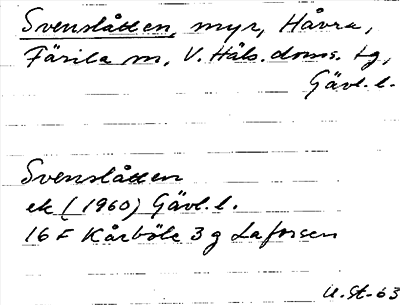 Svenslåtten, myr, Håvra,
Färila sn, V. Häls. doms. tg,
Gävl. l.
Svenslåtten
ek (1960) Gävl. l.
16 F Kårböle 3 g Laforsen
U. St-63